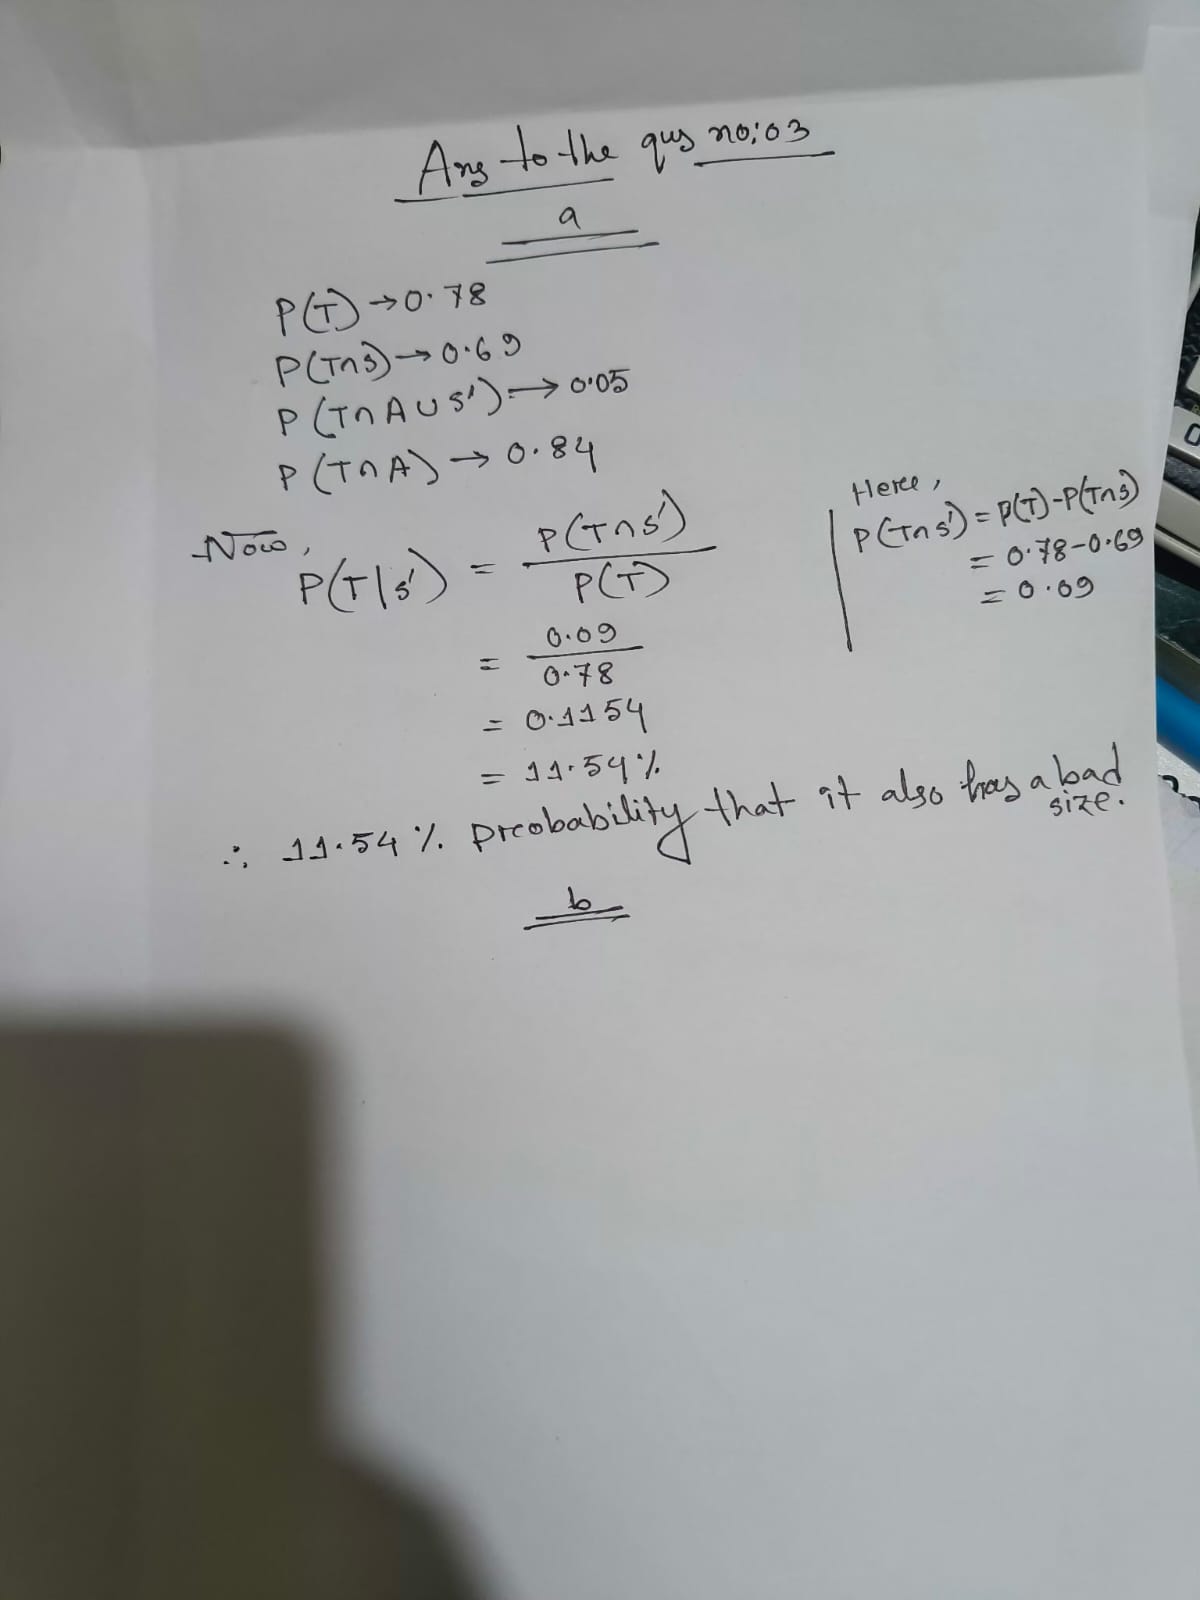 Ans to the qus no: 03
a
P(T) → 0.78
P(T∩S) → 0.69
P(T∩A∪S') → 0.05
P(T∩A) → 0.84
Now,
P(T|S') = P(T∩S') / P(T)
= 0.09 / 0.78
= 0.1154
= 11.54%
Here,
P(T∩S') = P(T) - P(T∩S)
= 0.78 - 0.69
= 0.09
∴ 11.54% probability that it also has a bad
size.
b